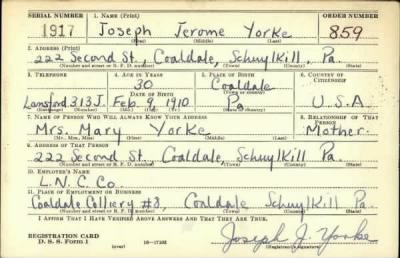 SERIAL NUMBER 1. NAME (Print) ORDER NUMBER
1917 Joseph Jerome Yorke 859
(First) (Middle) (Last)
2. ADDRESS (Print)
222 Second St., Coaldale, Schuylkill, Pa.
(Number and street or R. F. D. number) (Town) (County) (State)
3. TELEPHONE 4. AGE IN YEARS 5. PLACE OF BIRTH 6. COUNTRY OF CITIZENSHIP
30 Coaldale
DATE OF BIRTH (Town or county)
Lansford 313J. Feb. 9, 1910 Pa U.S.A.
(Exchange) (Number) (Mo.) (Day) (Yr.) (State or country)
7. NAME OF PERSON WHO WILL ALWAYS KNOW YOUR ADDRESS 8. RELATIONSHIP OF THAT PERSON
Mrs. Mary Yorke Mother.
(Mr., Mrs., Miss) (First) (Middle) (Last)
9. ADDRESS OF THAT PERSON
222 Second St., Coaldale, Schuylkill Pa.
(Number and street or R. F. D. number) (Town) (County) (State)
10. EMPLOYER'S NAME
L.N.C.Co.
11. PLACE OF EMPLOYMENT OR BUSINESS
Coaldale Colliery #8, Coaldale Schuylkill Pa.
(Number and street or R. F. D. number) (Town) (County) (State)
I AFFIRM THAT I HAVE VERIFIED ABOVE ANSWERS AND THAT THEY ARE TRUE.
REGISTRATION CARD
D. S. S. Form 1 (over) 16—17105 Joseph J. Yorke
(Registrant's signature)